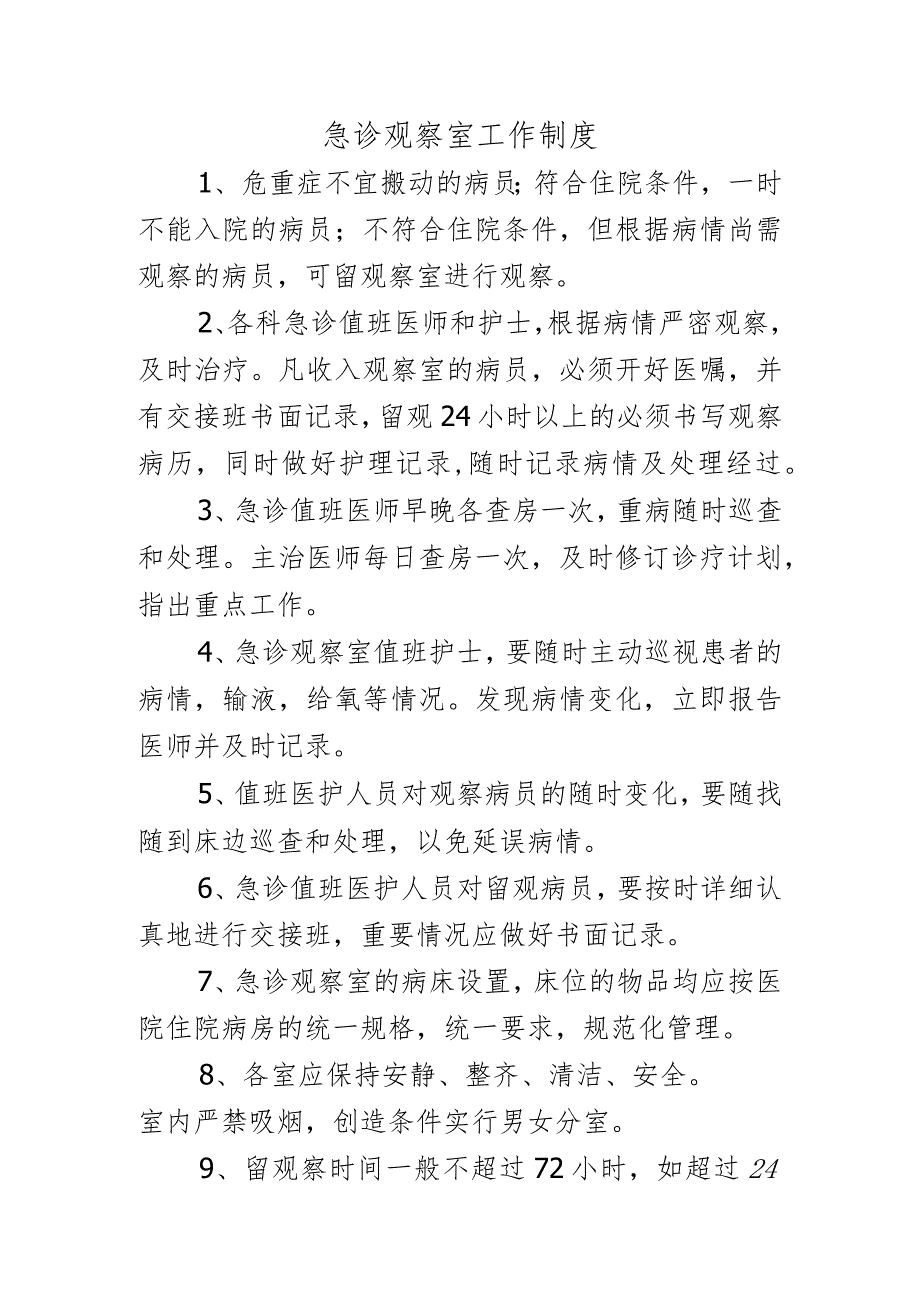 急诊观察室工作制度
1、危重症不宜搬动的病员；符合住院条件，一时
不能入院的病员；不符合住院条件，但根据病情尚需
观察的病员，可留观察室进行观察。
2、各科急诊值班医师和护士，根据病情严密观察，
及时治疗。凡收入观察室的病员，必须开好医嘱，并
有交接班书面记录，留观24小时以上的必须书写观察
病历，同时做好护理记录,随时记录病情及处理经过。
3、急诊值班医师早晚各查房一次，重病随时巡查
和处理。主治医师每日查房一次，及时修订诊疗计划，
指出重点工作。
4、急诊观察室值班护士，要随时主动巡视患者的
病情，输液，给氧等情况。发现病情变化，立即报告
医师并及时记录。
5、值班医护人员对观察病员的随时变化，要随找
随到床边巡查和处理，以免延误病情。
6、急诊值班医护人员对留观病员，要按时详细认
真地进行交接班，重要情况应做好书面记录。
7、急诊观察室的病床设置，床位的物品均应按医
院住院病房的统一规格，统一要求，规范化管理。
8、各室应保持安静、整齐、清洁、安全。
室内严禁吸烟，创造条件实行男女分室。
9、留观察时间一般不超过72小时，如超过24